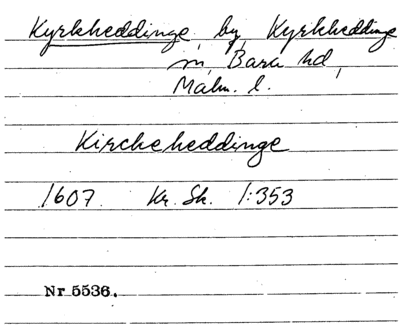 Kyrkheddinge, by, Kyrkheddinge
sn, Bara hd,
Malm. l.
Kircheheddinge
1607. Kr. Sk. 1:353
Nr 5536.